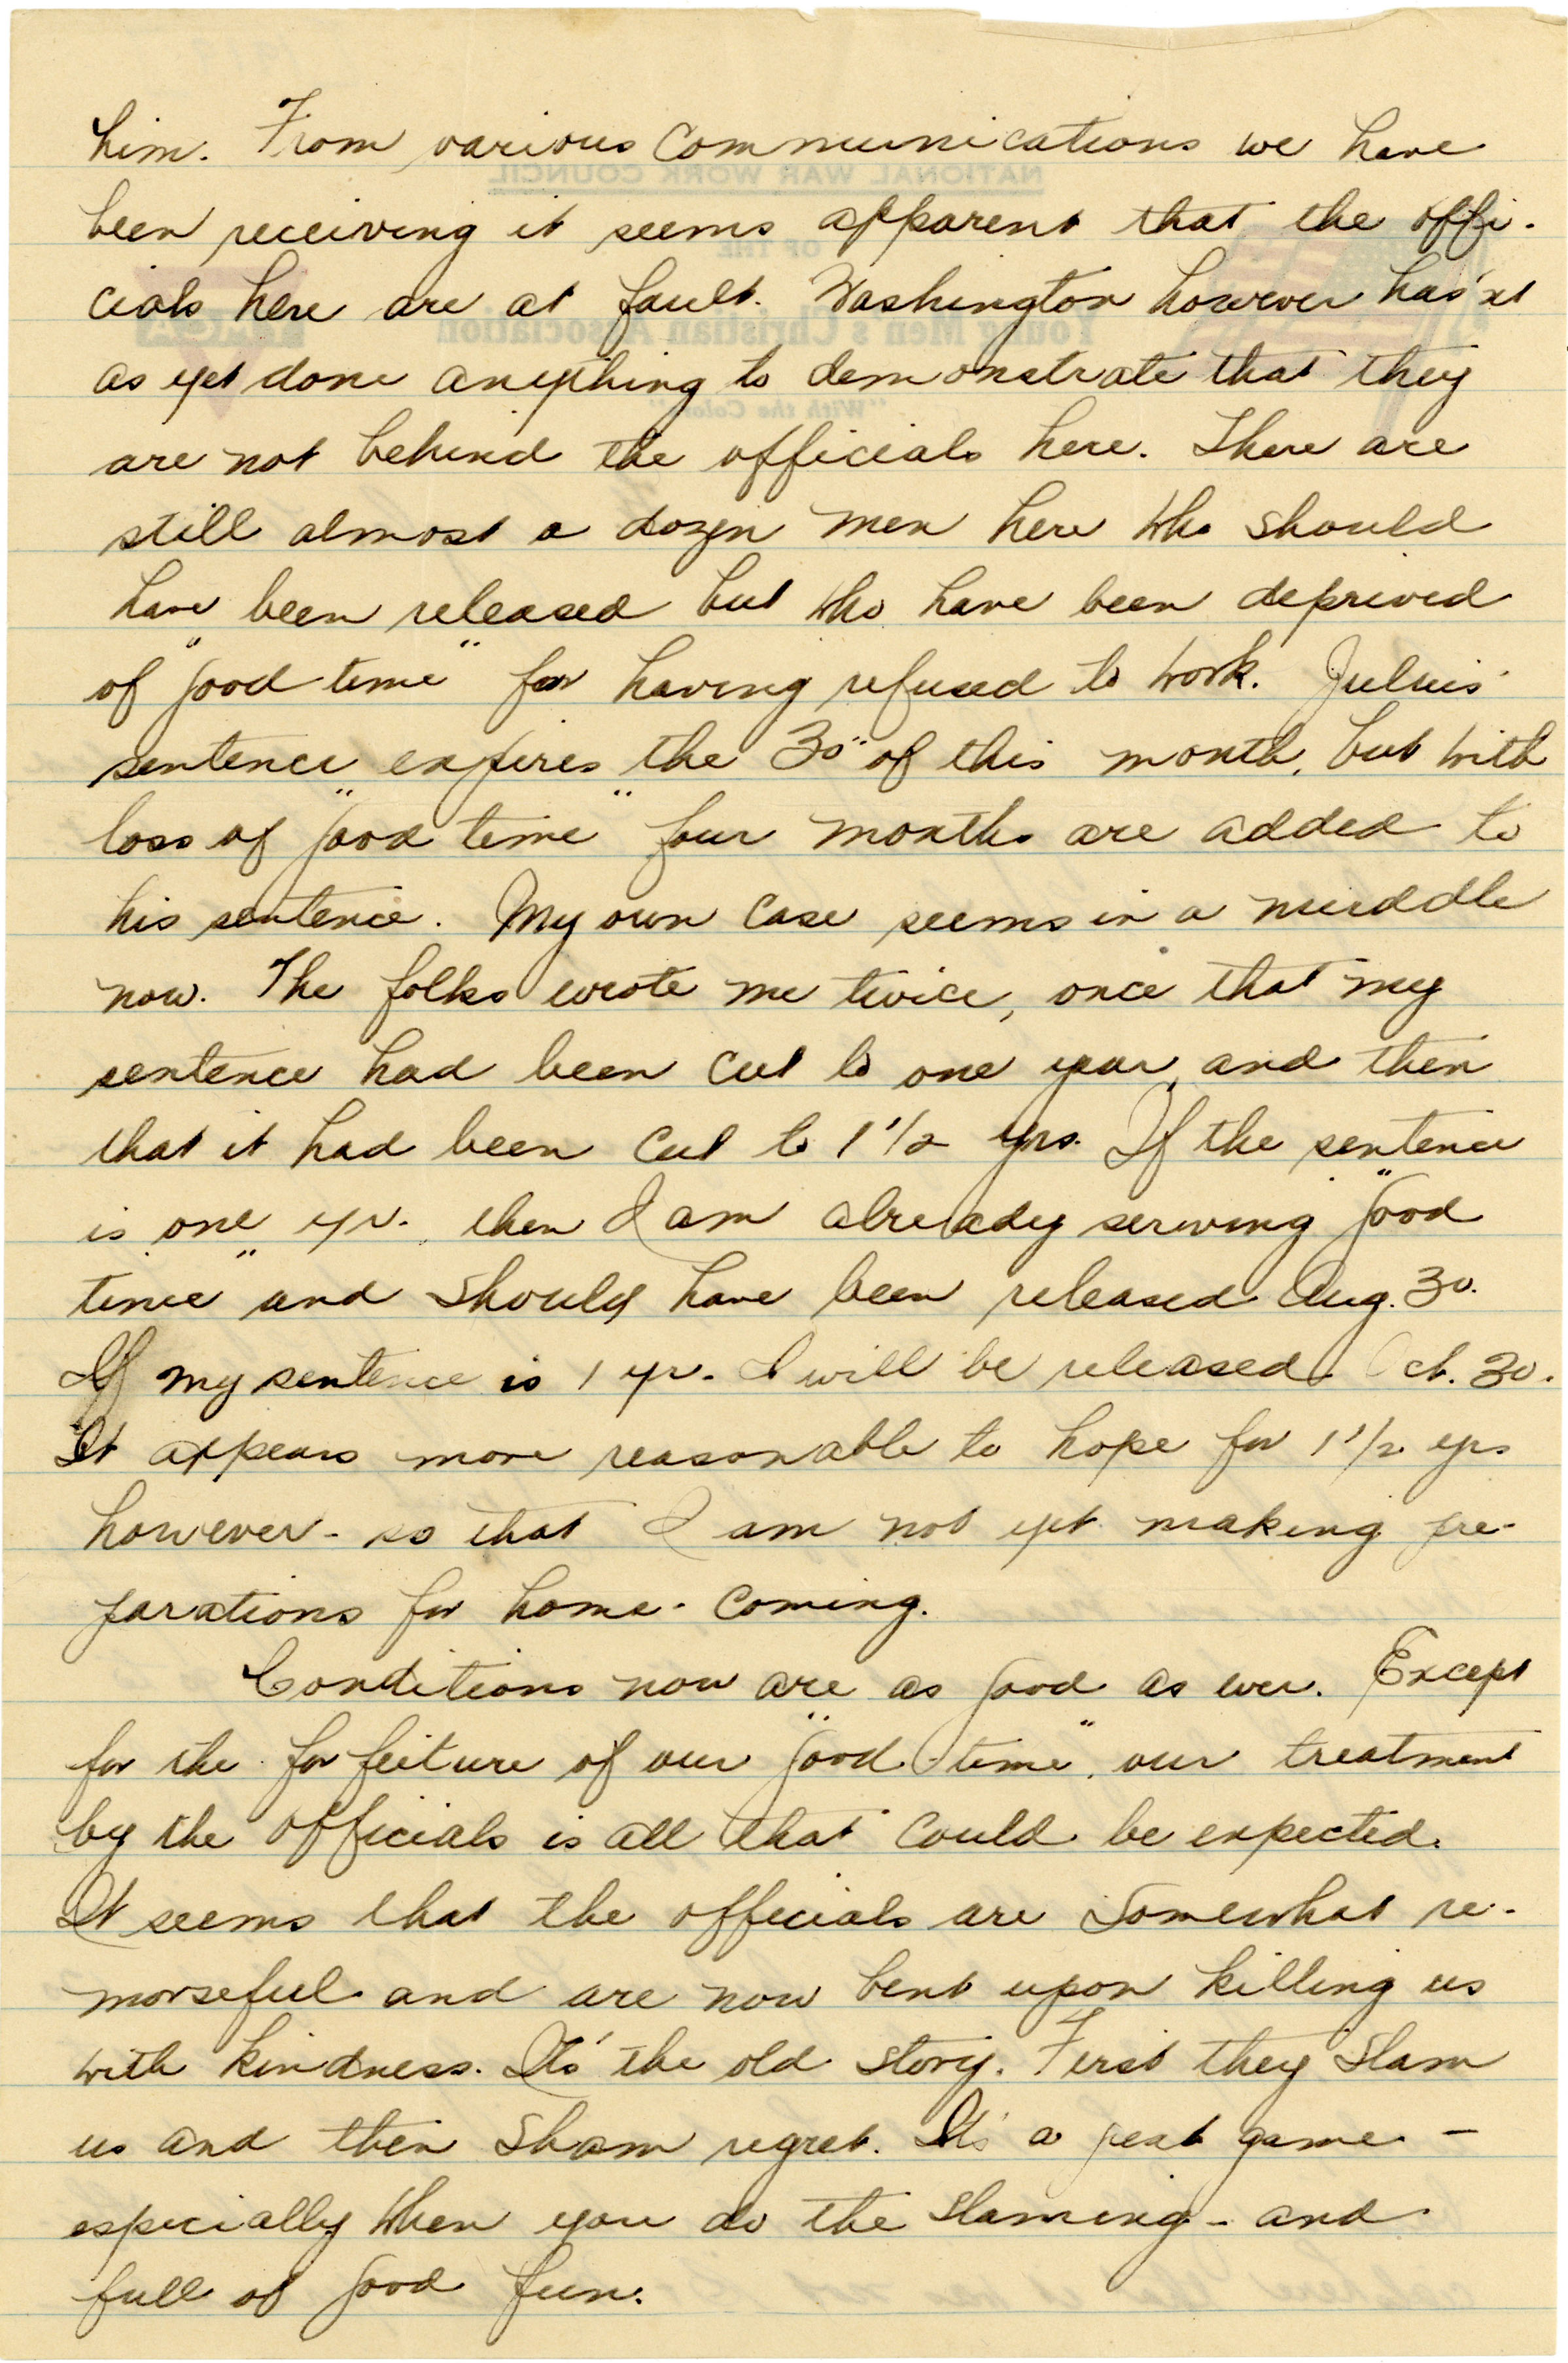 him. From various communications we have
been receiving it seems apparent that the offi-
cials here are at fault. Washington however has'nt
as yet done anything to demonstrate that they
are not behind the officials here. There are
still almost a dozen men here who should
have been released but who have been deprived
of "good time" for having refused to work. Julius'
sentence expires the 30" of this month, but with
loss of "good time" four months are added to
his sentence. My own case seems in a muddle
now. The folks wrote me twice, once that my
sentence had been cut to one year, and then
that it had been cut to 1 1/2 yrs. If the sentence
is one yr. then I am already serving "good
time" and should have been released Aug. 30.
If my sentence is 1 yr. I will be released Oct. 30.
It appears more reasonable to hope for 1 1/2 yrs
however - so that I am not yet making pre-
parations for home-coming.
Conditions now are as good as ever. Except
for the forfeiture of our "good-time", our treatment
by the officials is all that could be expected.
It seems that the officials are somewhat re-
morseful and are now bent upon killing us
with kindness. Its' the old story. First they slam
us and then sham regret. It's a great game -
especially when you do the slaming - and
full of good fun.
NATIONAL WAR WORK COUNCIL
OF THE
Young Men's Christian Association
"With the Colors"